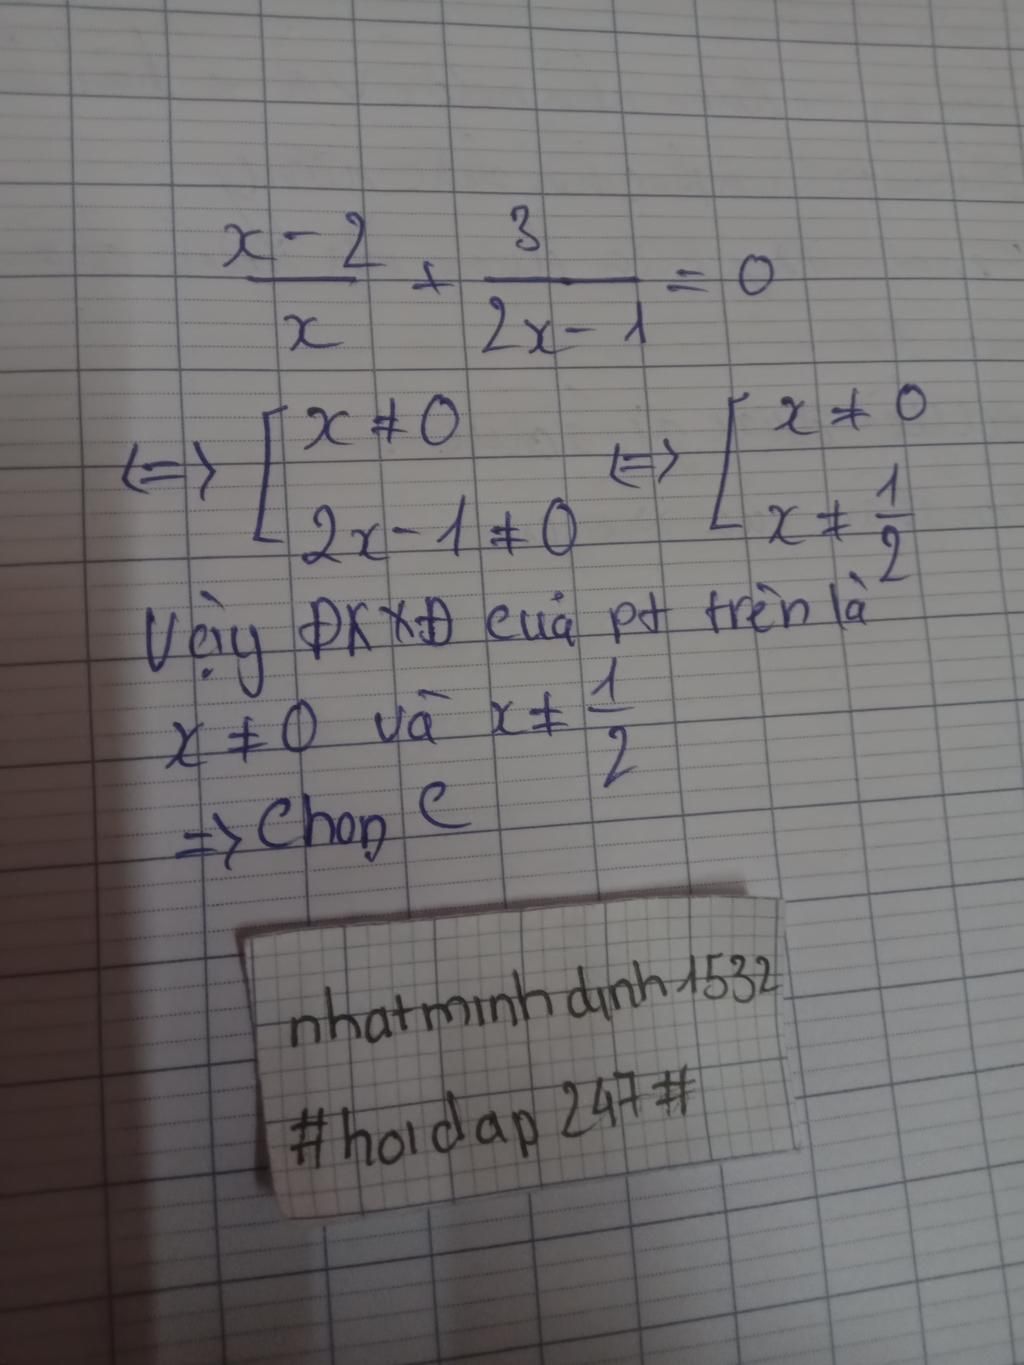 x - 2 / x + 3 / 2x - 1 = 0
<=> [ x ≠ 0 <=> [ x ≠ 0
2x - 1 ≠ 0 x ≠ 1/2
Vậy ĐKXĐ của pt trên là
x ≠ 0 và x ≠ 1/2
=> Chọn C
nhatminhdinh1532
#hoidap247#